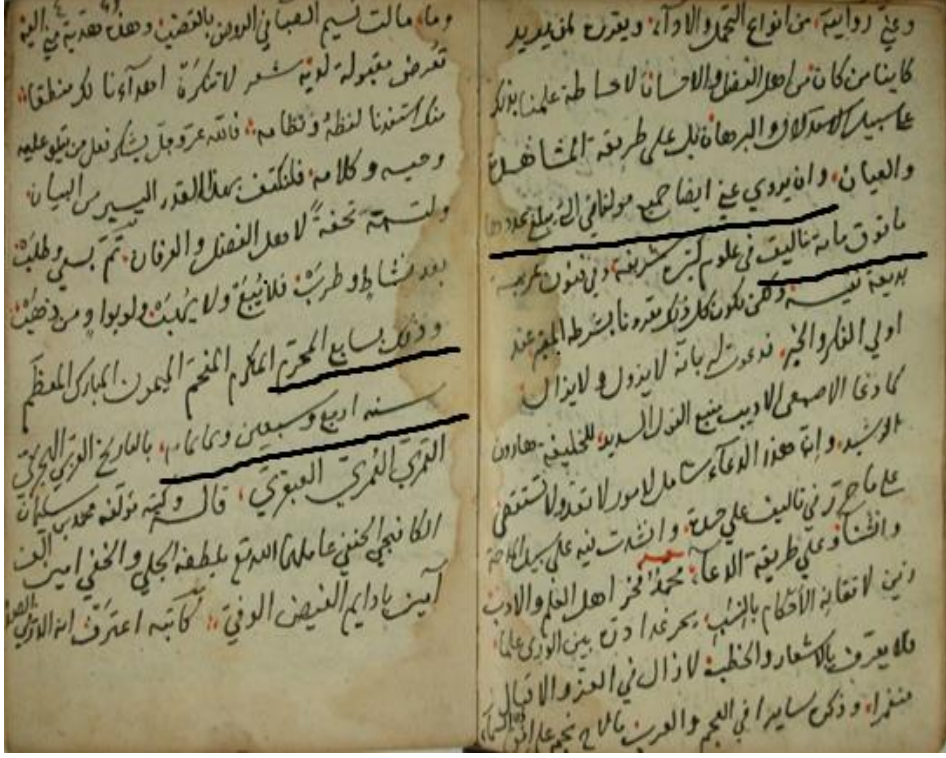 وعني رواية من انواع التحمل والاداء ويقرن لمن يريد
كاينا من كان من اهل الفضل والاحسان لاحاطة علمنا بذلك
على سبيل الاستدلال والبرهان بل على طريقة المشاهدة
والعيان وان يروي عني ايضا جميع مولفاتي التي يبلغ عددها
ما فوق ماية تاليف في علوم كثيرة شريفة وفي فنون غريبة
بديعة نفيسة ولكن يكون كل ذلك مقرونا بشرطه المعتبر عند
اولي الفكر والخبر فدعوت له بانه لا يزول ولا يزال
كما دعا الاصمعي الاديب منبع القول السديد للخليفة هارون
الرشيد وانما هذا الدعاء شامل لامور لا تعد ولا تستقصى
على ما حرر في تاليف على حدة وانشدت فيه على سبيل
وانشاد على طريقة الدعاء محمد فخر اهل العلم والادب
لاتقانه الاحكام بالسبب بحر غدا بين الورى علما
فلا يعرف بالاشعار والخطب لا زال في العز والاقبال
منفردا وذكره سايرا في العجم والعرب ما لاح نجم على افق السماء
وما مالت نسيم الصبا في الروض بالقضب وهذه هدية مني اليه
تعرض مقبولة لديه شعر لا تنكرن اهداءنا لك منطقا
منك استفدنا لفظه ونظامه فالله عز وجل يشكر فعل من يتلو عليه
وحيه وكلامه فلنكتف بهذا القدر اليسير من البيان
تحفة لاهل الفضل والعرفان تم بسي وطلبت
بعد نشاط وطربت
وذلك بسابع المحرم المكرم المفخم الميمون المبارك المعظم
سنة اربع وسبعين وثمانماية بالتاريخ العربي الهجري
القمري العمري العبقري قاله وكتبه مؤلفه محمد بن سليمان
الكافيجي الحنفي عاملهما الله تع بلطفه الجلي والخفي امين الف
آمين يا دايم الفيض الوفي كاتبه اعترف انه